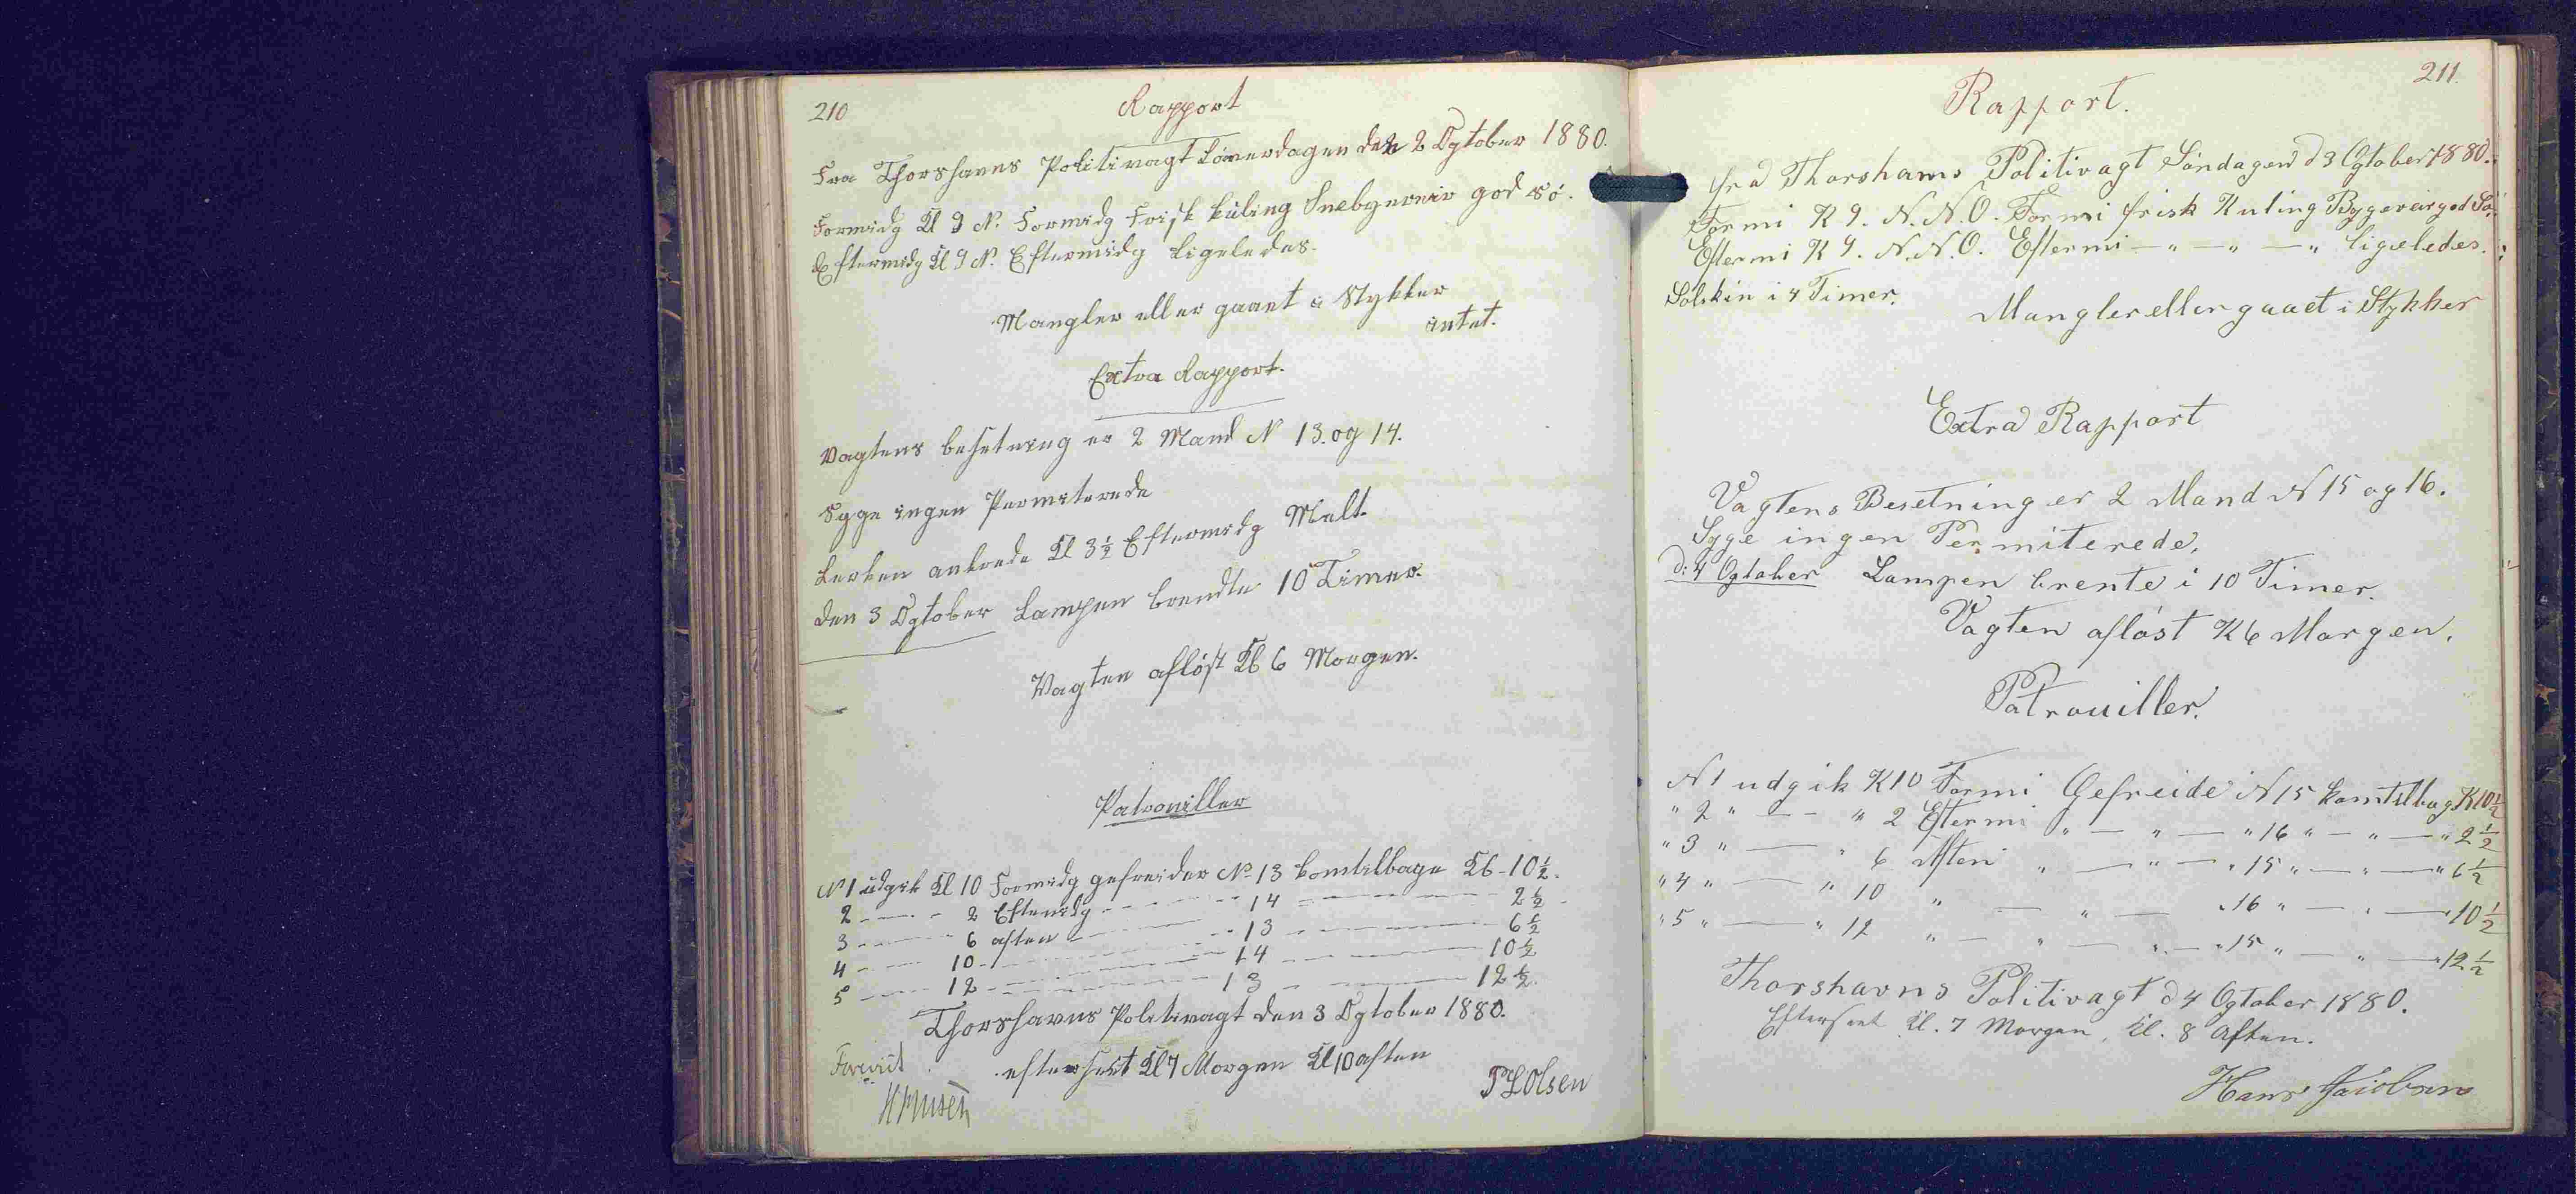 210
Rapport
Fra Thorshavns Politivagt Löverdagen den 2 Ogtober 1880.
Formidg Kl 9 N. Formidg Frisk Küling Snebyerveir god Sö.
Eftermidg Kl 9 N. Eftermidg Ligeledes.
Mangler eller gaaet i Stykker
intet.
Extra Rapport.
Vagtens besetning er 2 Mand N 13. og 14.
Syge ingen Permiterede
Lerken ankrede Kl 3½ Eftermidg Malt.
den 3 Ogtober Lampen brendte 10 Timer.
Vagten aflöst Kl 6 Morgen.
Patrouiller
N 1 udgik Kl 10 Formidg gefreider N. 13 komtilbage Kl. 10½.
2 - - - 2 Eftemidg - - - 14 - - - 2½
3 - - - 6 aften - - - 13 - - - 6½
4 - - - 10 - - - 14 - - - 10½
5 - - - 12 - - - 13 - - - 12½.
Thorshavns Politivagt den 3 Ogtober 1880.
efterseet Kl 7 Morgen Kl 10 aften
Forevist
P L Olsen
211.
Rapport.
fra Thorshavns Politivagt Söndagen d 3 Ogtober 1880.
Formi K 9. N.N.O. Formi frisk Kuling Bygeveir god Sö.
Eftermi K 9. N.N.O. Eftermi — " — " — " ligeledes.
Solskin i 4 Timer.
Mangler eller gaaet i Stykker
Extra Rapport
Vagtens Besetning er 2 Mand N 15 og 16.
Syge ingen Permiterede.
d: 4 Ogtober Lampen brente i 10 Timer.
Vagten aflöst K 6 Morgen.
Patrouiller.
N 1 udgik K 10 Formi Gefreide N 15 komtilbag K 10½
" 2 " — " 2 Eftermi " — " — " 16 " — " — " 2½
" 3 " — " 6 Aften " — " — " 15 " — " — " 6½
" 4 " — " 10 " — " — " 16 " — " — " 10½
" 5 " — " 12 " — " — " — " 15 " — " — " 12½
Thorshavns Politivagt d 4 Ogtober 1880.
Efterseet Kl. 7 Morgen, Kl. 8 Aften.
Hans Jacobsen